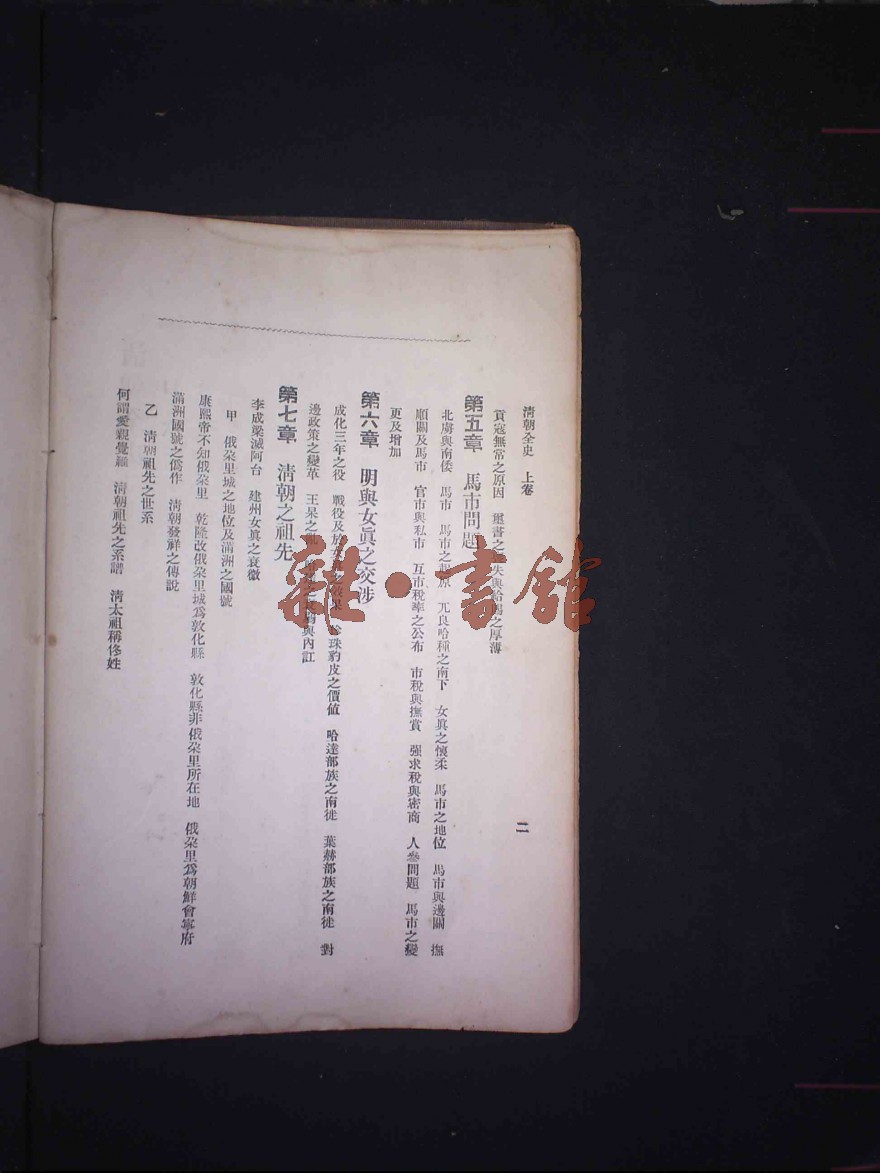 清朝全史 上卷
二
貢寇無常之原因 璽書之 失與給賜之厚薄
第五章 馬市問題
北虜與南倭 馬市 馬市之 原 兀良哈種之南下 女眞之懷柔 馬市之地位 馬市與邊關 撫
順關及馬市 官市與私市 互市稅率之公布 市稅與撫賞 强求稅與密商 人參問題 馬市之變
更及增加
第六章 明與女眞之交涉
成化三年之役 戰役及 珠豹皮之價値 哈達部族之南徙 葉赫部族之南徙 對
邊政策之變革 王杲之 與內訌
第七章 淸朝之祖先
李成梁滅阿台 建州女眞之衰微
甲 俄朶里城之地位及滿洲之國號
康熙帝不知俄朶里 乾隆改俄朶里城爲敦化縣 敦化縣非俄朶里所在地 俄朶里爲朝鮮會寧府
滿洲國號之僞作 清朝發祥之傳說
乙 清朝祖先之世系
何謂愛親覺羅 清朝祖先之系譜 清太祖稱佟姓
雜·書館